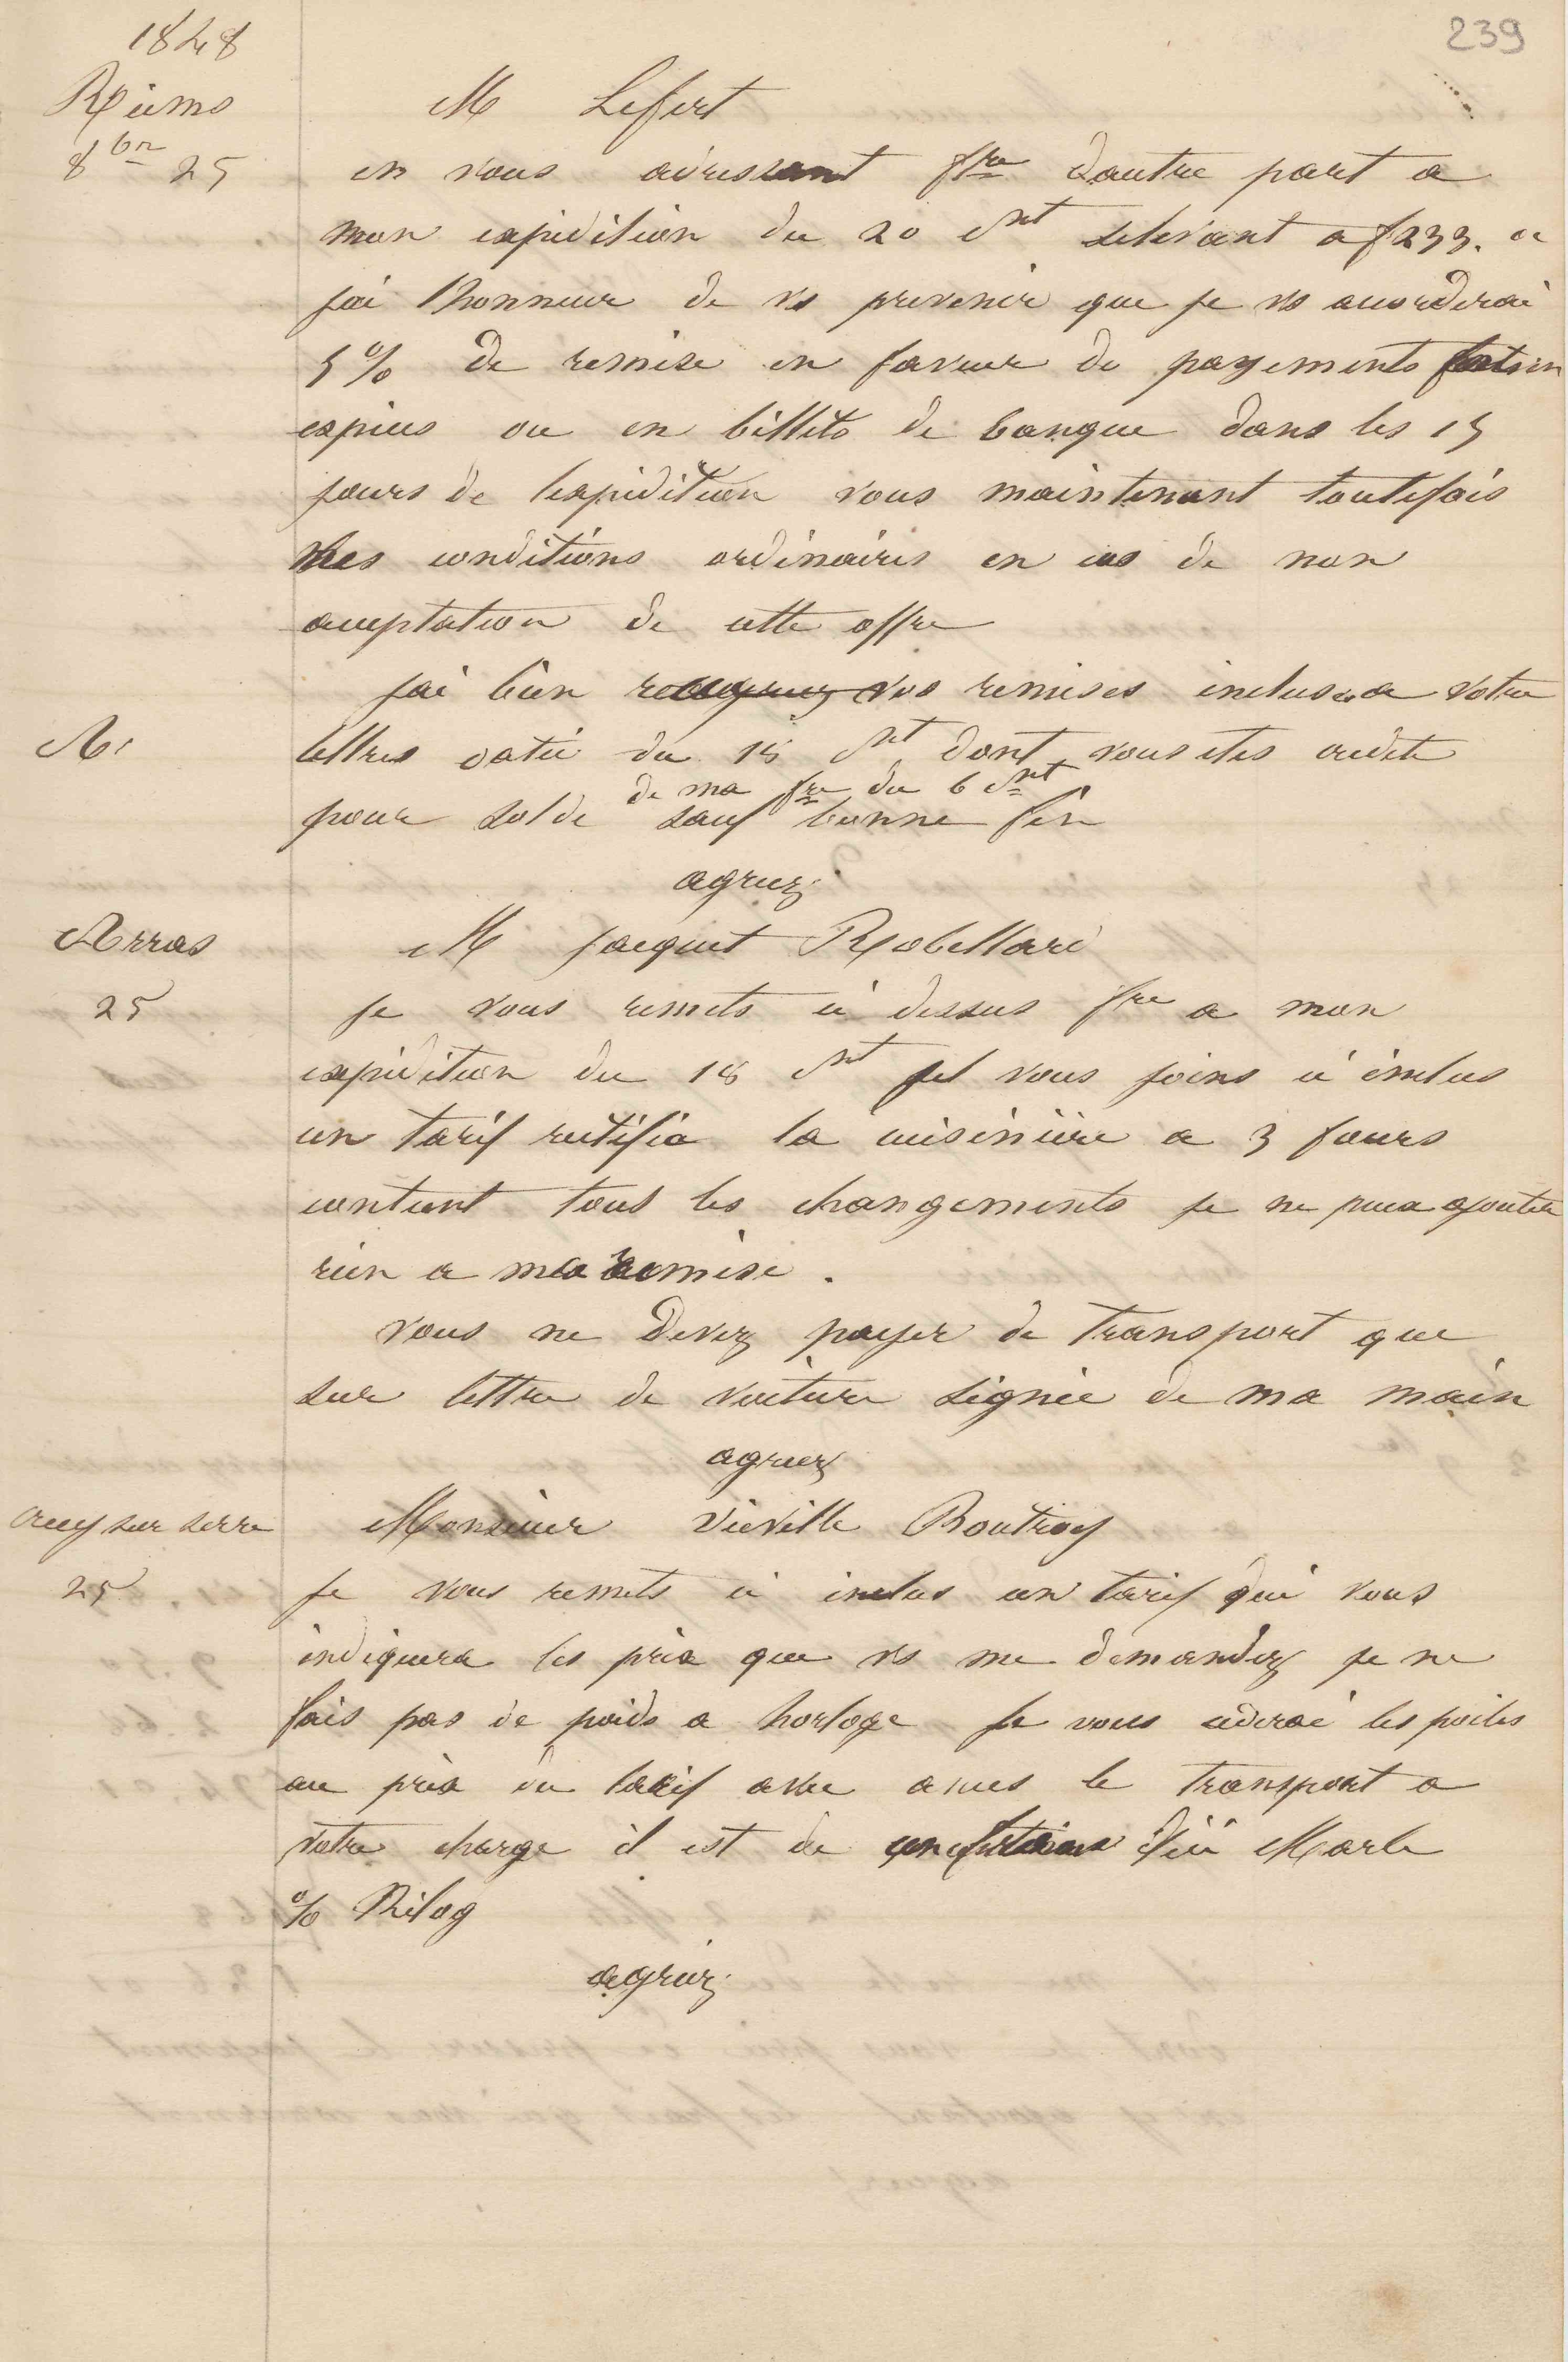 239
1848
Reims
8bre 25
M Lefert
en vous adressant fre dautre part a
mon expedition du 20 ct selevant a f 233.
jai lhonneur de vs prevenir que je vs accorderai
5 % de remise en faveur de payements fait en
espices ou en billets de banque dans les 15
jours de lexpedition vous maintenant toutefois
mes conditions ordinaires en cas de non
acceptation de cette offre
jai bien vos remises incluses a votre
lettres datée du 18 ct dont vous etes credite
de ma fre du 6 ct
pour solde sauf bonne fin
agreez
Arras
25
M Jacquet Robillard
Je vous remets ci dessus fre a mon
expedition du 18 ct je vous joins ci inclus
un tarif rectifié la cuisinière a 3 fours
contient tous les changements je ne puux ajouter
rien a ma remise.
vous ne devez payer de transport que
sur lettre de voiture signée de ma main
agreez
Crecy sur serre
25
Monsieur Vieville Boutroy
Je vous remets ci inclus un tarif qui vous
indiquera les prix que vs me demandez je ne
fais pas de poids a horloge Je vous cederai les poiles
au prix du tarif avec le transport a
votre charge il est de d'ici Marle
% Kilog
agreez